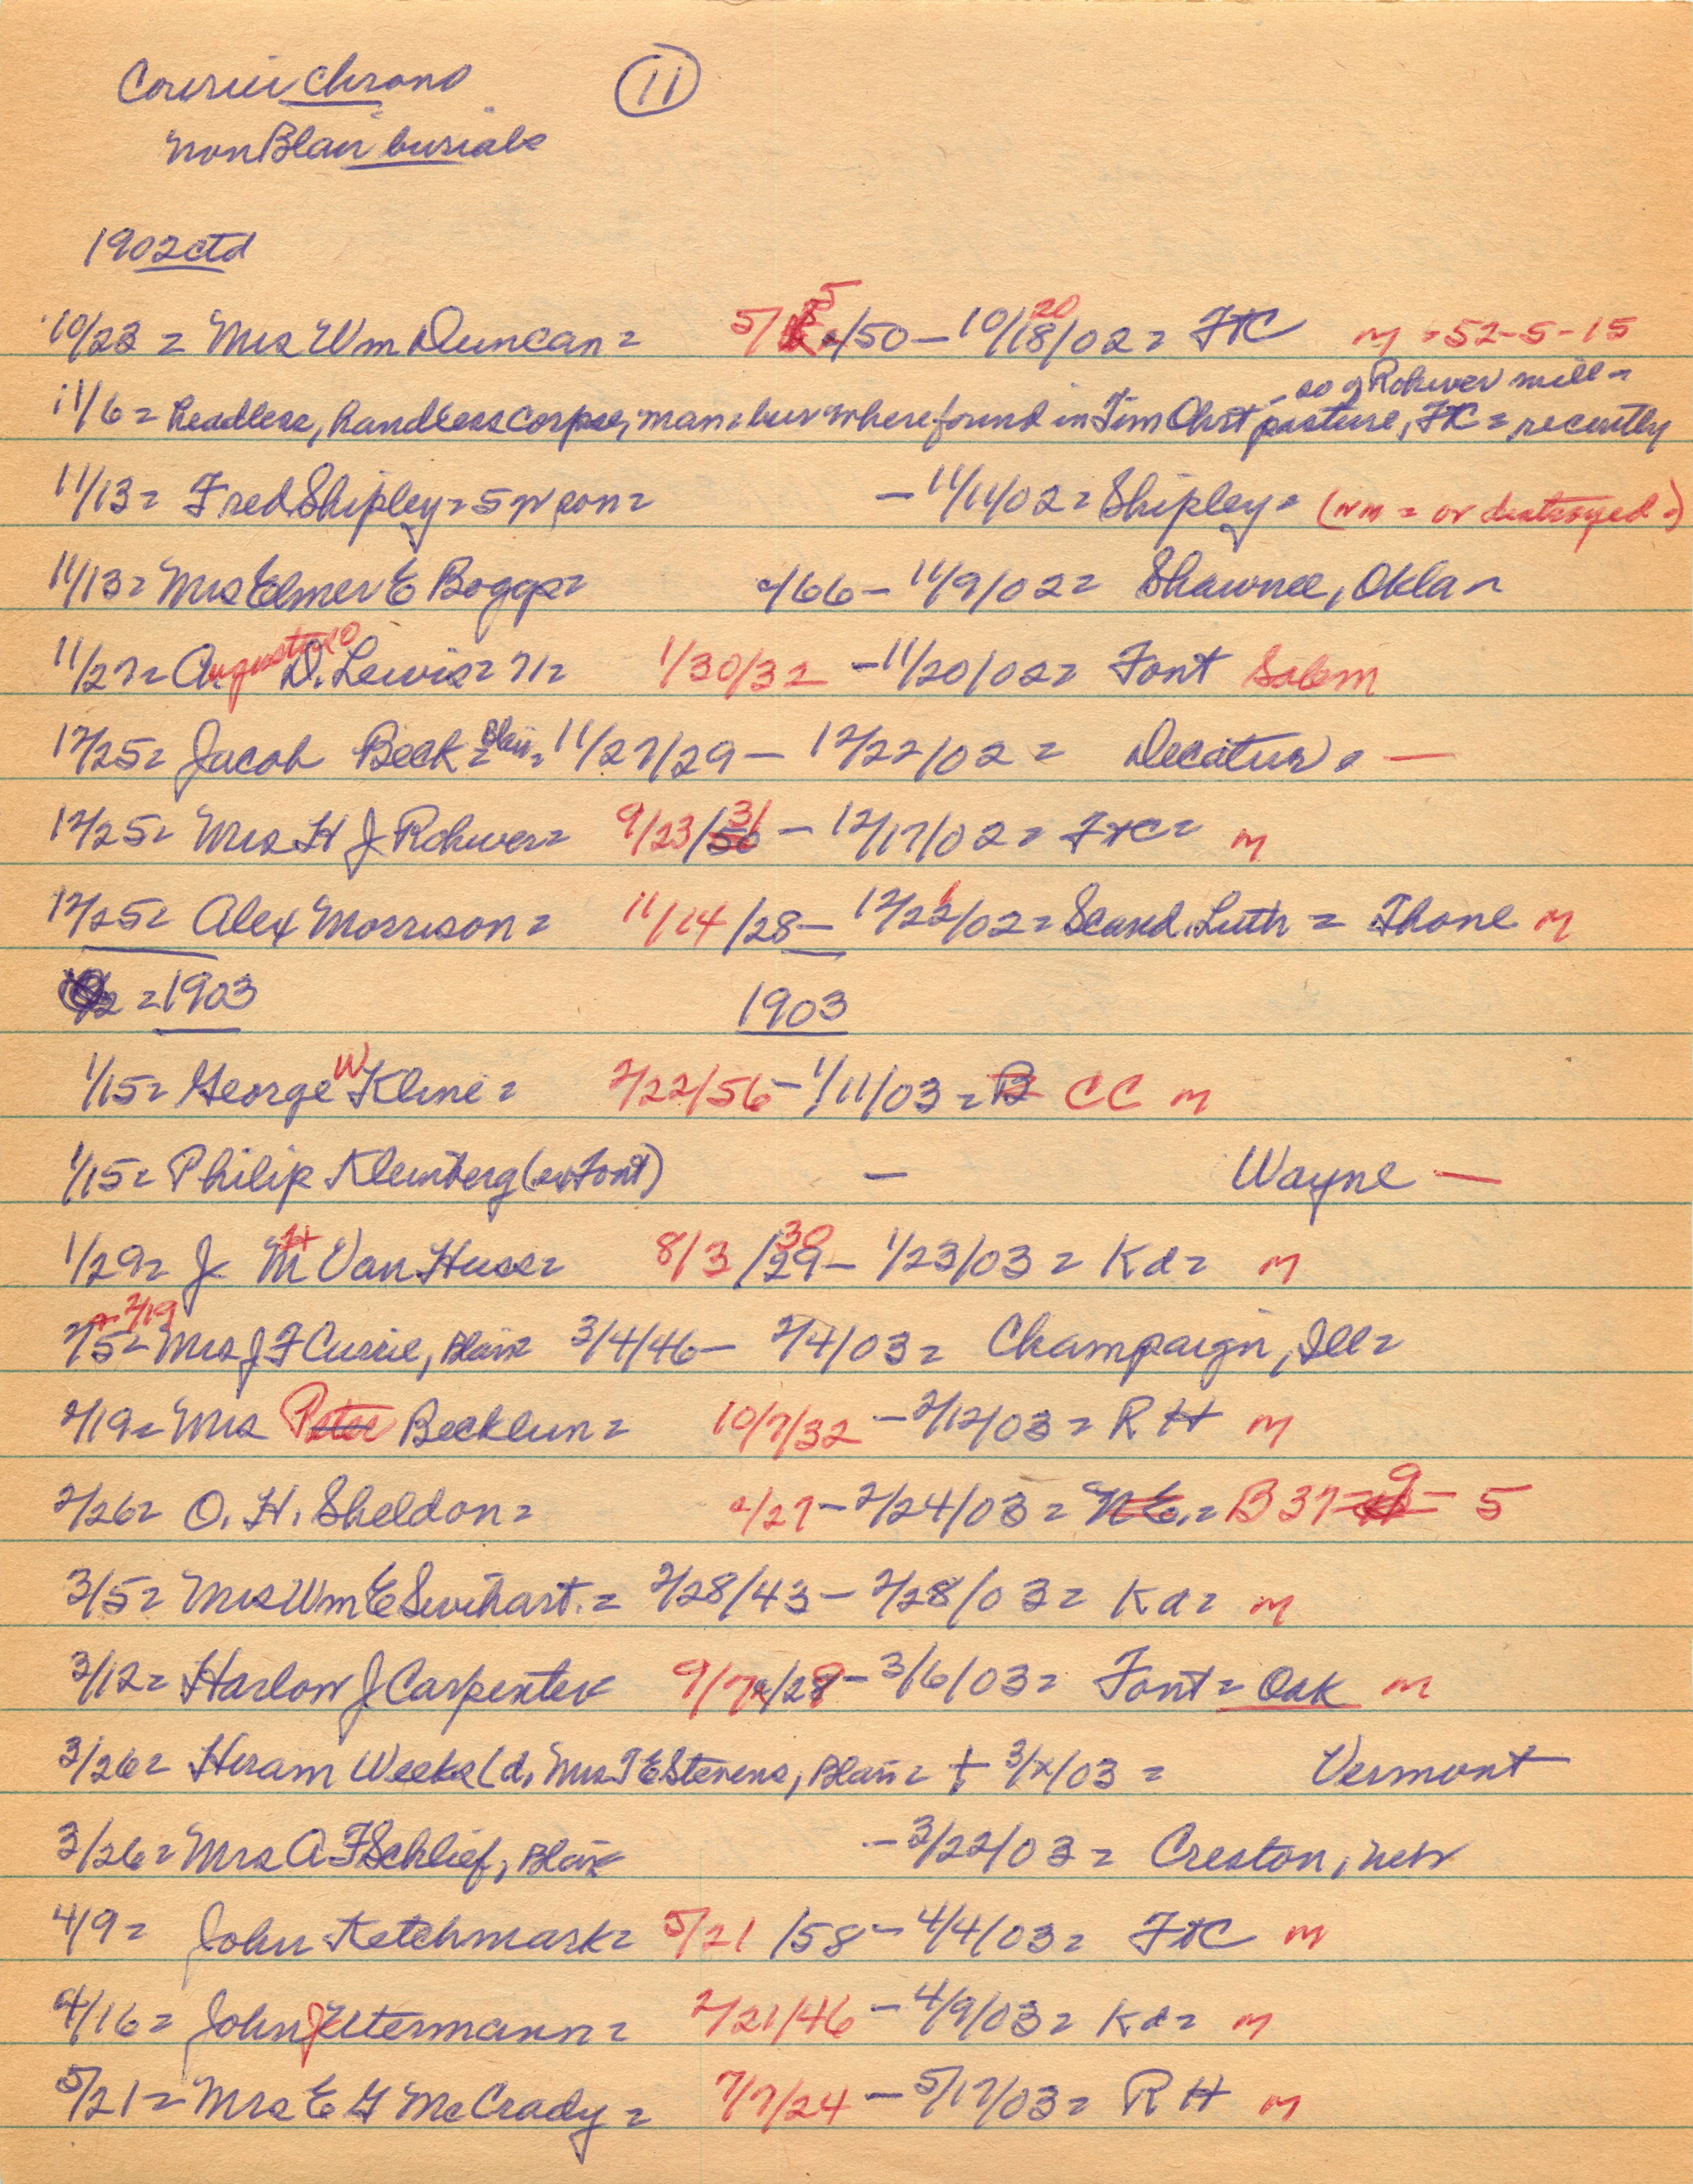 Courier Chrono 11
non Blair burials
1902 ctd
10/23 = Mrs Wm Duncan = 5/5/50 - 10/18/02 = FtC m = 52-5-15
20
- so of Rohwer mill -
11/6 = headless, handless corpse, man; bur where found in Tim Ohrt pasture, FtC = recently
11/13 = Fred Shipley = 5 yr son = - 11/11/02 = Shipley = (nm = or destroyed =)
11/13 = Mrs Elmer E Boggs = /66 - 11/9/02 = Shawnee, Okla -
11/27 = Augustus D. Lewis = 71 = 1/30/32 - 11/20/02 = Font Salem
12/25 = Jacob Beck = Blair = 11/27/29 - 12/22/02 = Decatur = —
12/25 = Mrs H J Rohwer = 9/23/50 31 - 12/17/02 = FtC = m
12/25 = Alex Morrison = 11/14/28 - 12/22/02 = Scand. Luth = Thone m
= 1903 1903
1/15 = George W Kline = 2/22/56 - 1/11/03 = B CC m
1/15 = Philip Kleinberg (ex Font) — Wayne —
1/29 = J M H Van Huse = 8/3/29 30 - 1/23/03 = Kd = m
2/19
2/5 = Mrs J F Currie, Blair = 3/4/46 - 2/4/03 = Champaign, Ill =
2/19 = Mrs Peter Becklun = 10/7/32 - 2/12/03 = RH m
2/26 = O. H. Sheldon = /27 - 2/24/03 = NE. = B 37 - 9 - 5
3/5 = Mrs Wm E Swihart. = 2/28/43 - 2/28/03 = Kd = m
3/12 = Harlow J Carpenter 9/7/28 - 3/6/03 = Font = Oak m
3/26 = Hiram Weeks (d, Mrs T E Stevens, Blair = + 3/x/03 = Vermont
3/26 = Mrs A F Schlief, Blair - 3/22/03 = Creston, Neb
4/9 = John Ketchmark = 5/21/58 - 4/4/03 = FtC m
4/16 = John J Utermann = 2/21/46 - 4/9/03 = Kd = m
5/21 = Mrs E G McCrady = 7/7/24 - 5/17/03 = RH m